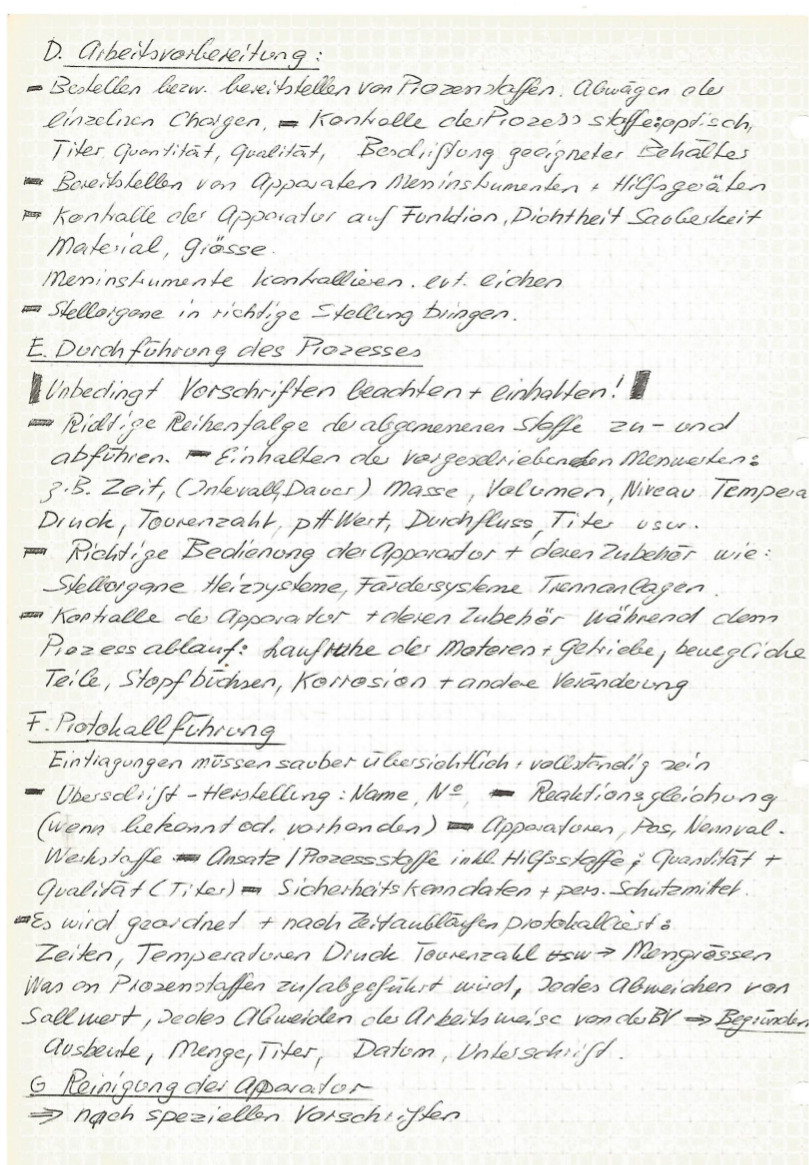 D. Arbeitsvorbereitung:
- Bestellen bezw. bereitstellen von Prozesstoffen. Abwägen der
einzelnen Chargen. - Kontrolle der Prozess stoffe: optisch,
Titer, Quantität, Qualität, Beschriftung geeigneter Behälter
- Bereitstellen von Apparaten Messinstrumenten + Hilfsgeräten
- Kontrolle der Apparatur auf Funktion, Dichtheit Sauberkeit
Material, Grösse.
Messinstrumente kontrollieren. evt. eichen
- Stellorgane in richtige Stellung bringen.
E. Durchführung des Prozesses
Unbedingt Vorschriften beachten + einhalten!
- Richtige Reihenfolge der abgemessenen Stoffe zu- und
abführen. - Einhalten der vorgeschriebenen Messwerten:
z.B. Zeit, (Intervall, Dauer) Masse, Volumen, Niveau Tempera
Druck, Tourenzahl, pH Wert, Durchfluss, Titer usw.
- Richtige Bedienung der Apparatur + deren Zubehör wie:
Stellorgane Heizsysteme, Fördersysteme Trennanlagen.
- Kontrolle der Apparatur + deren Zubehör während dem
Prozess ablauf: Laufruhe der Motoren + Getriebe, bewegliche
Teile, Stopfbüchsen, Korrosion + andere Veränderung
F. Protokollführung
Eintragungen müssen sauber übersichtlich + vollständig sein
- Überschrift - Herstellung: Name, Nº, - Reaktionsgleichung
(wenn bekannt od. vorhanden) - Apparaturen, Pos, Nennvol.
Werkstoffe - Ansatz / Prozessstoffe inkl. Hilfsstoffe; Quantität +
Qualität (Titer) - Sicherheitskenndaten + pers. Schutzmittel.
- Es wird geordnet + nach Zeitabläufen protokolliert:
Zeiten, Temperaturen Druck Tourenzahl usw → Messgrössen
Was an Prozesstoffen zu/abgeführt wird, Jedes Abweichen von
Sollwert, Jedes Abweichen der Arbeitsweise von der BV ⇒ Begründen
Ausbeute, Menge, Titer, Datum, Unterschrift.
G Reinigung der Apparatur
⇒ nach speziellen Vorschriften